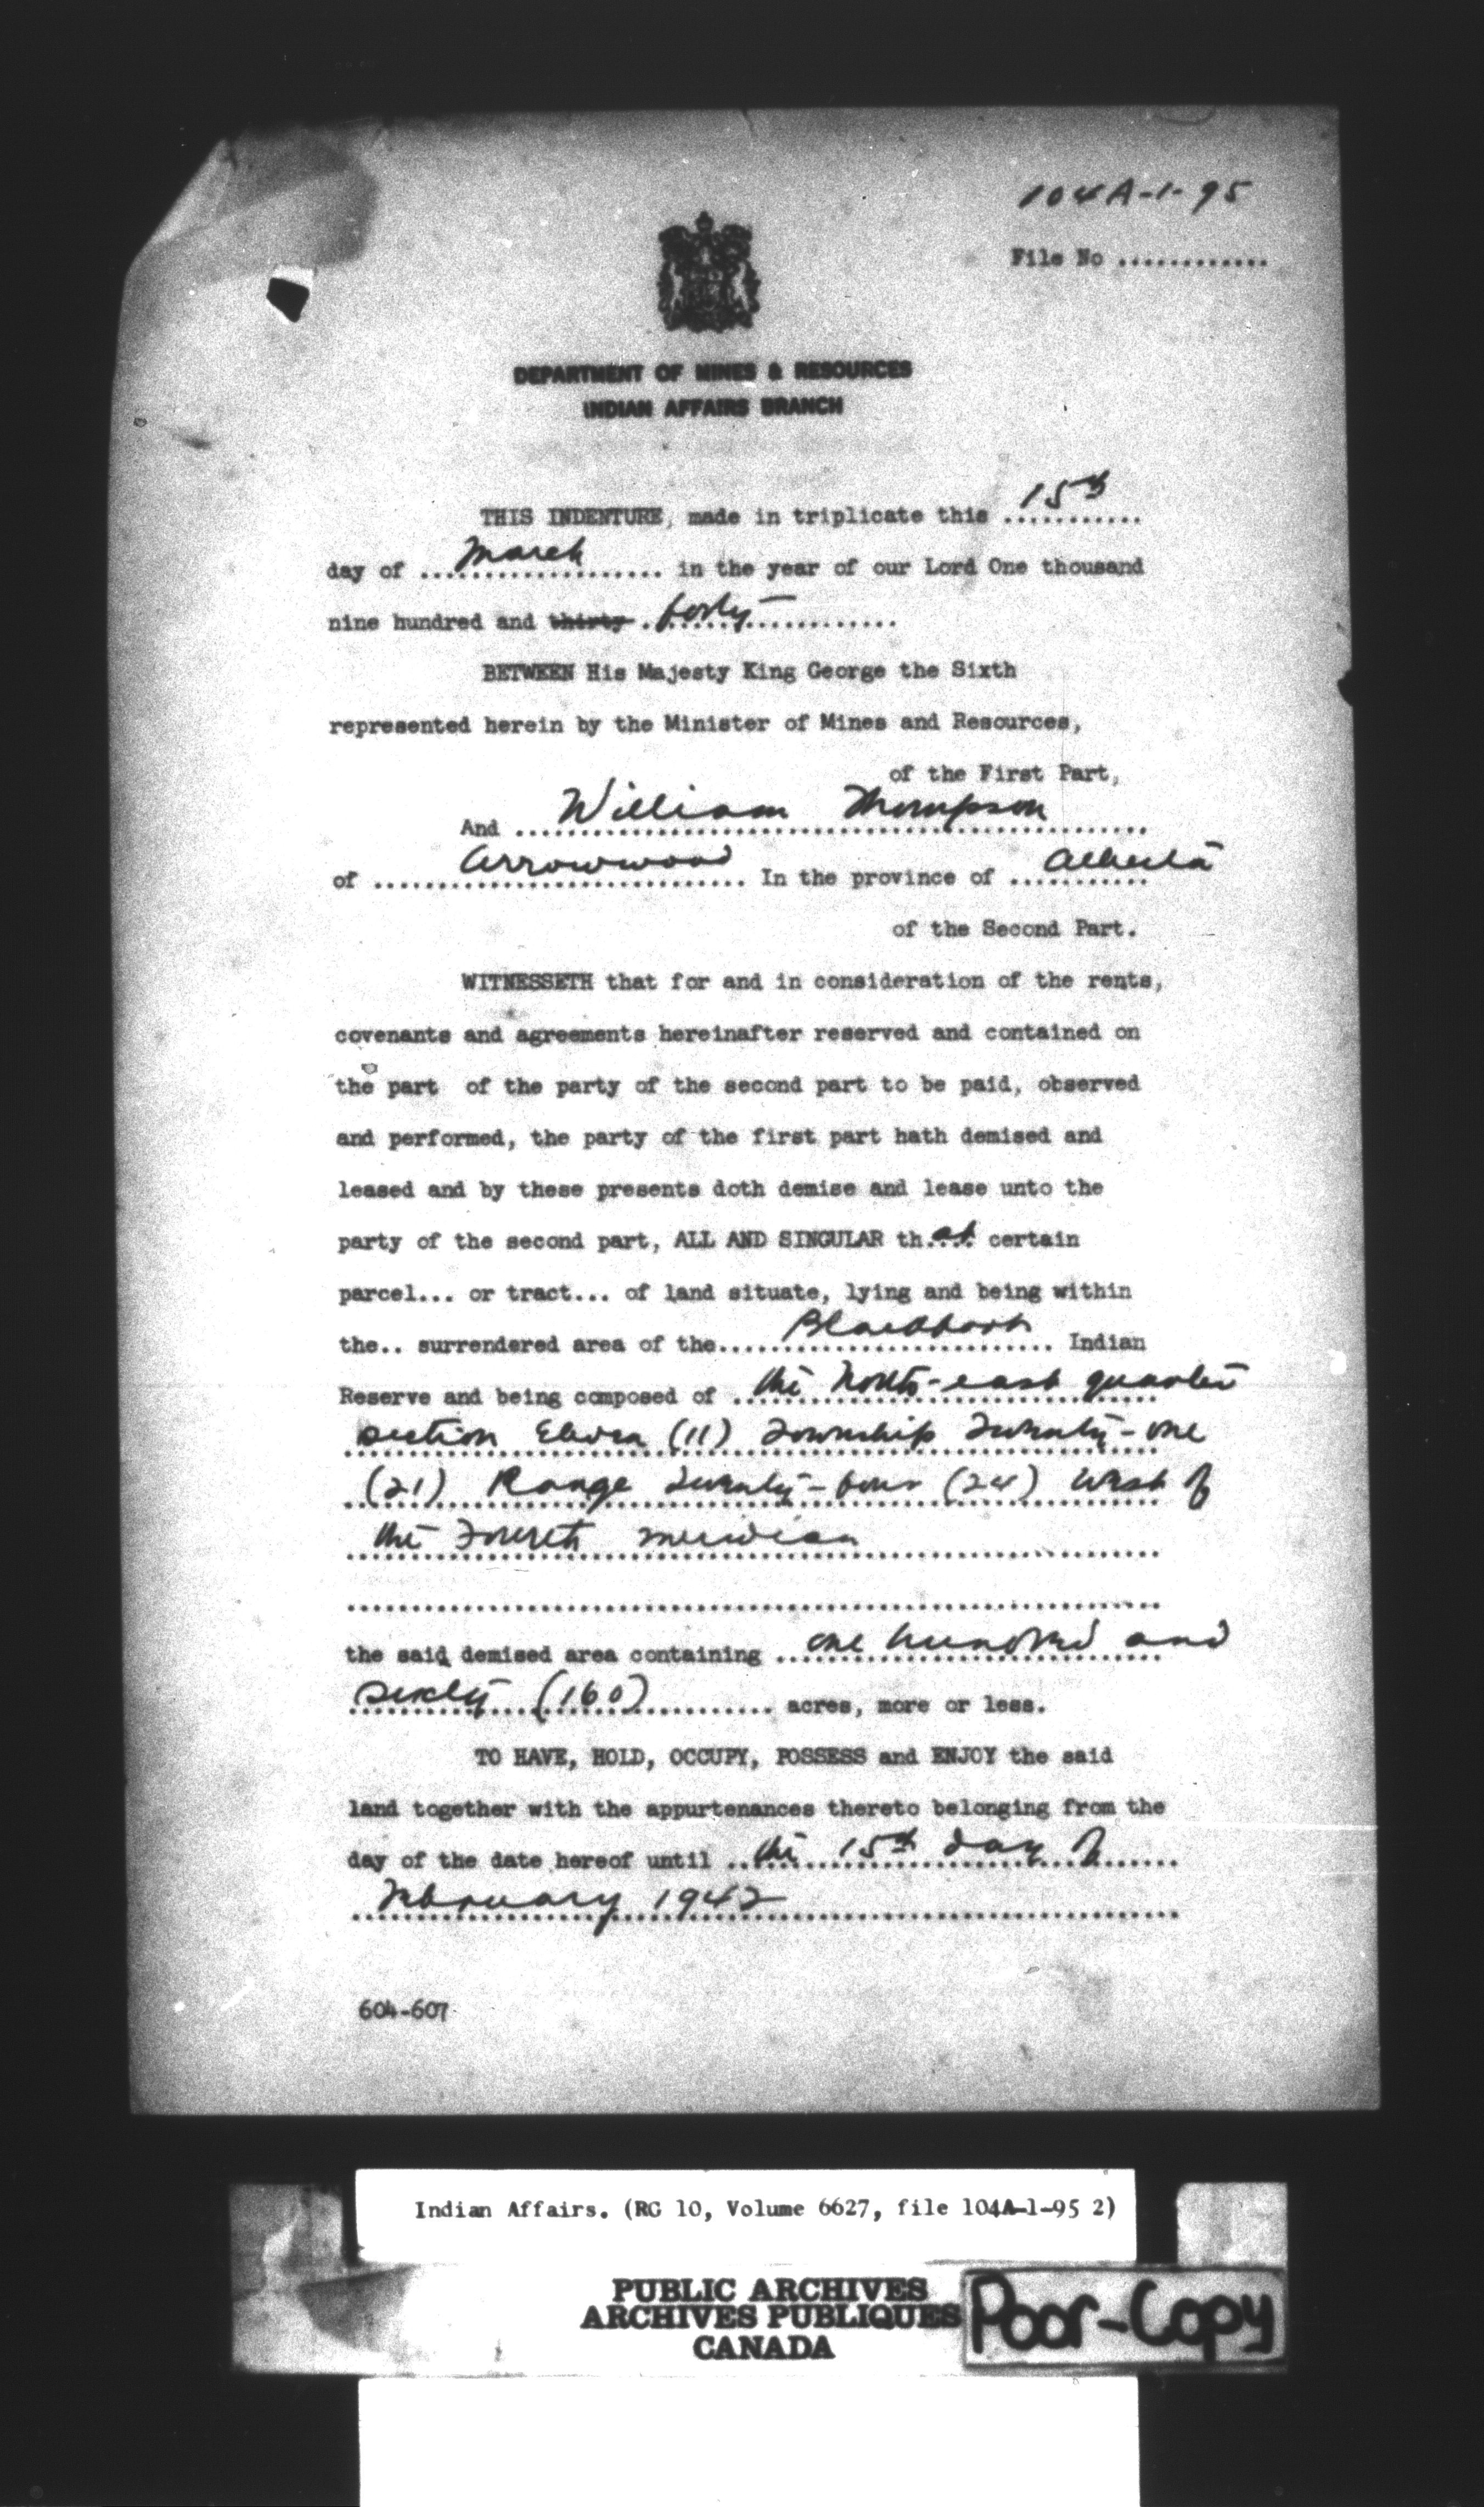 104A-1-95
File No ............
DEPARTMENT OF MINES & RESOURCES
INDIAN AFFAIRS BRANCH
THIS INDENTURE, made in triplicate this 15th
day of March in the year of our Lord One thousand
nine hundred and thirty forty
BETWEEN His Majesty King George the Sixth
represented herein by the Minister of Mines and Resources,
of the First Part,
And William Thompson
of Arrowwood In the province of Alberta
of the Second Part.
WITNESSETH that for and in consideration of the rents,
covenants and agreements hereinafter reserved and contained on
the part of the party of the second part to be paid, observed
and performed, the party of the first part hath demised and
leased and by these presents doth demise and lease unto the
party of the second part, ALL AND SINGULAR that certain
parcel... or tract... of land situate, lying and being within
the.. surrendered area of the Blackfoot Indian
Reserve and being composed of the North-east quarter
section Eleven (11) Township Twenty-one
(21) Range Twenty-four (24) West of
the Fourth meridian
the said demised area containing one hundred and
sixty (160) acres, more or less.
TO HAVE, HOLD, OCCUPY, POSSESS and ENJOY the said
land together with the appurtenances thereto belonging from the
day of the date hereof until the 15th day of
February 1942
604-607
Indian Affairs. (RG 10, Volume 6627, file 104A-1-95 2)
PUBLIC ARCHIVES
ARCHIVES PUBLIQUES
CANADA
Poor-Copy